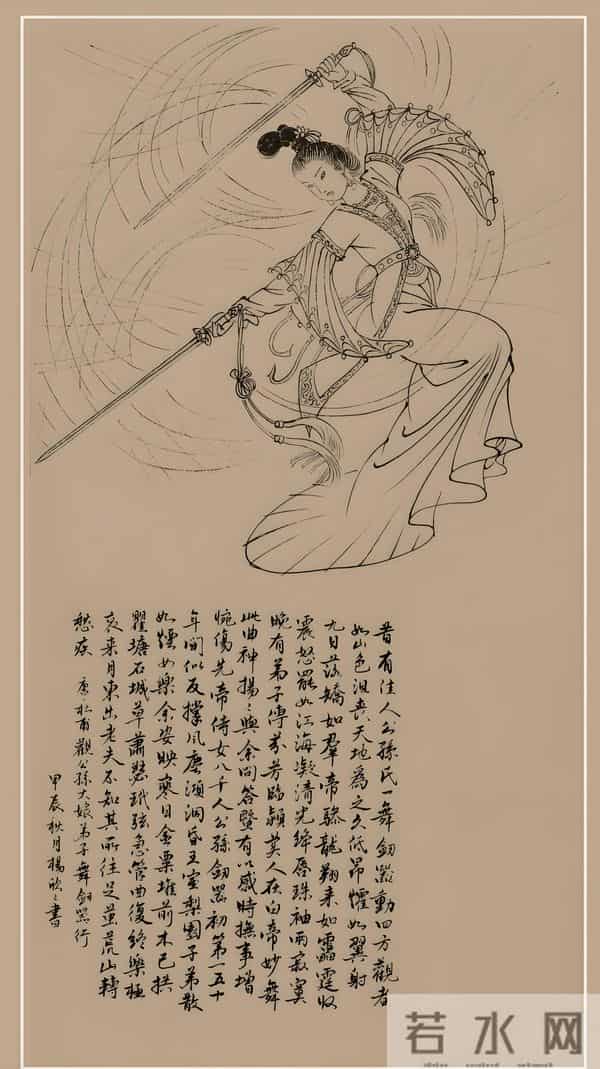 昔有佳人公孫氏一舞劒器動四方觀者
如山色沮喪天地為之久低昂懼如翼射
九日落矯如羣帝驂龍翔来如雷霆收
震怒罷如江海凝清光絳唇珠袖兩寂寞
晚有弟子傳芬芳臨潁美人在白帝妙舞
此曲神揚〻與余問答暨有以感時撫事增
惋傷先帝侍女八千人公孫劒器初第一五十
年間似反掌風塵澒洞昏王室梨園子弟散
如煙女樂余姿映寒日金粟堆前木已拱
瞿塘石城草蕭瑟玳弦急管曲復終樂極
哀来月東出老夫不知其所往足繭荒山轉
愁疾 唐杜甫觀公孫大娘弟子舞劒器行
甲辰秋月楊欣〻書
若水网